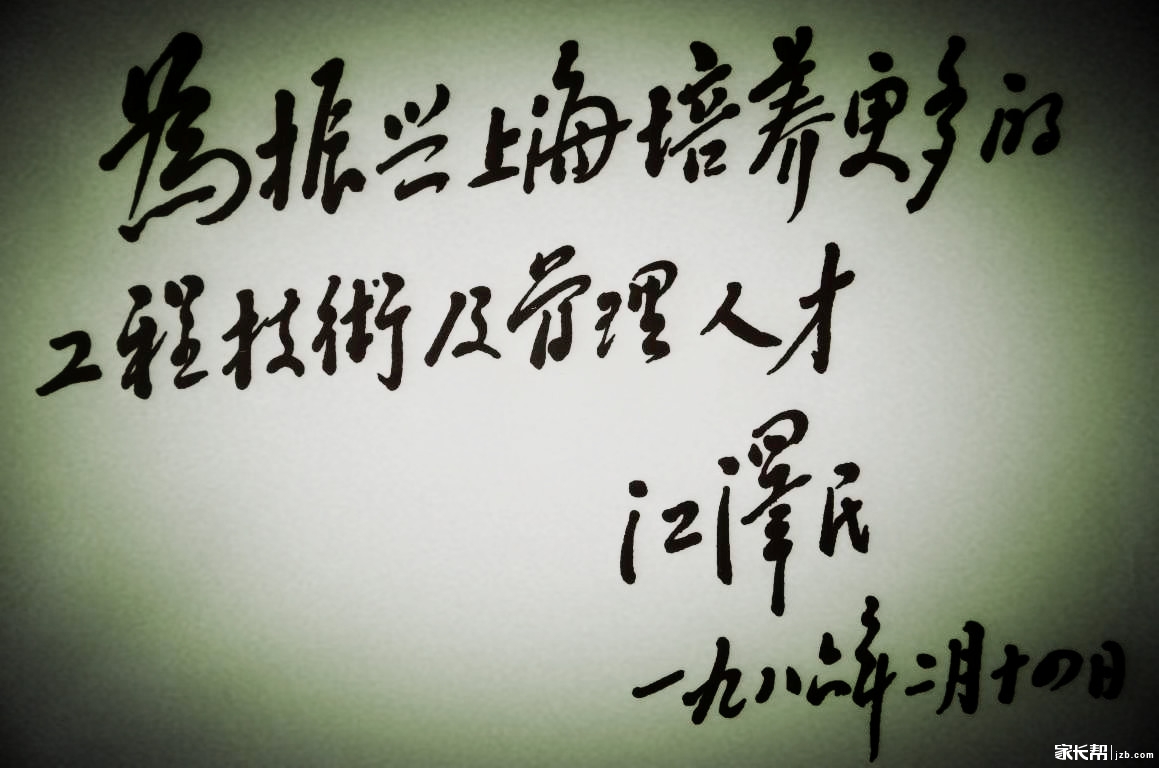 為振兴上海培养更多的
工程技術及管理人才
江澤民
一九八六年二月十四日
家长帮 jzb.com